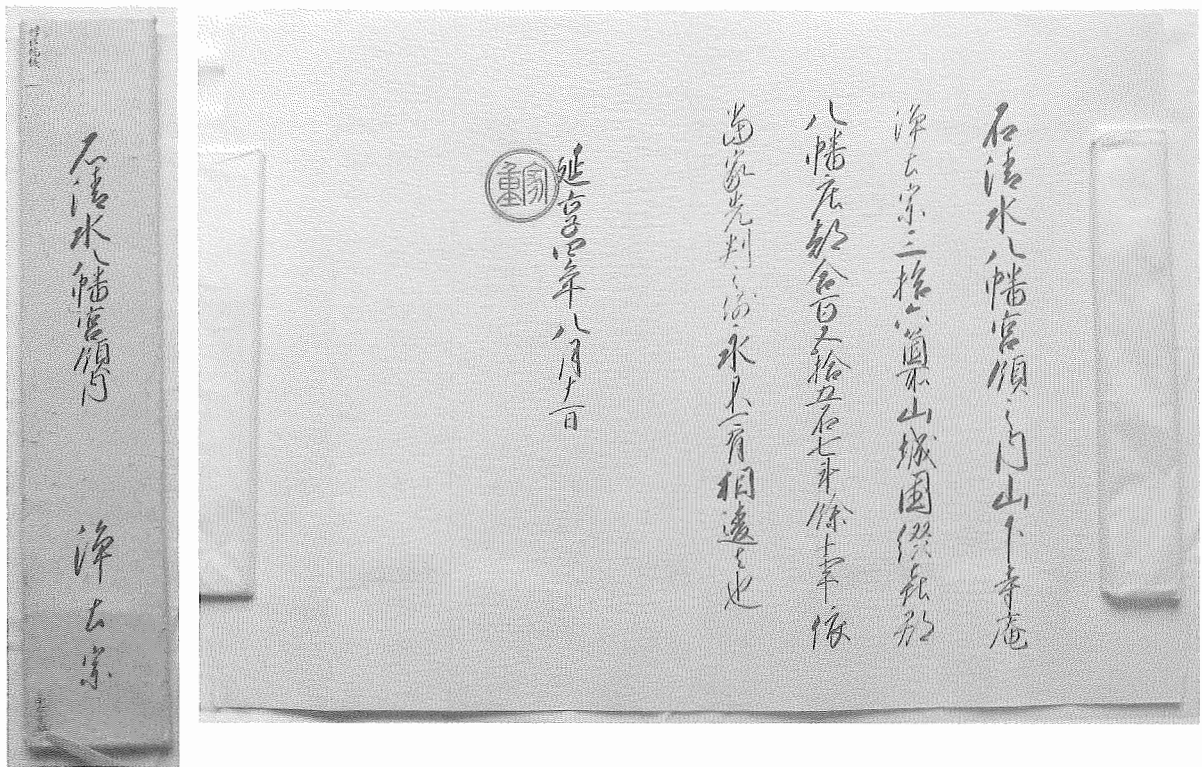 石清水八幡宮領之内山下寺庵
浄土宗三拾六箇所山城国綴喜郡
八幡庄都合百五拾五石七斗餘事依
当家先判之例永不可有相違之也
延享四年八月十一日
家重
石清水八幡宮領内
浄土宗